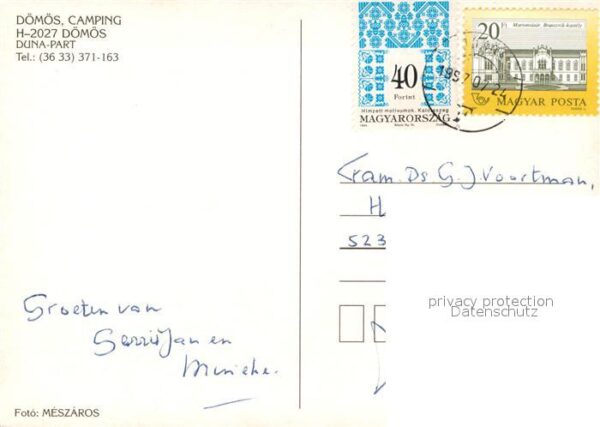 DÖMÖS, CAMPING
H-2027 DÖMÖS
DUNA-PART
Tel.: (36 33) 371-163
40
Forint
Hímzett motívumok. Kalotaszeg
MAGYARORSZÁG
20 Ft
MAGYAR POSTA
1997 07 24
Fam. Ds G. J. Voortman,
H
523
privacy protection
Datenschutz
Groeten van
Gerrit Jan en
Mineke.
Fotó: MÉSZÁROS